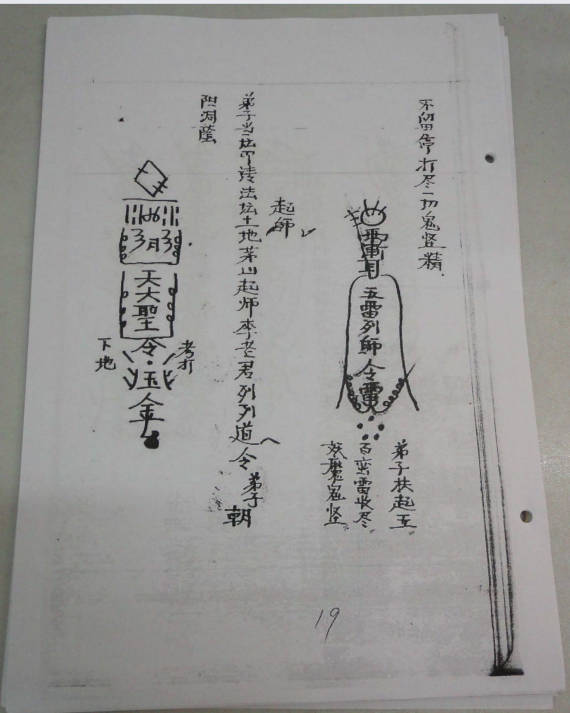 不留停打尽一切鬼竖精
雷
五雷列师令雷
弟子扶起五
百蛮雷收尽
妖魔鬼竖
起师
弟子当坛 法坛土地茅山起师李老君列列道令
弟子
朝
阳洞荫
月
天大聖
令
玉
金
考打
下地
19